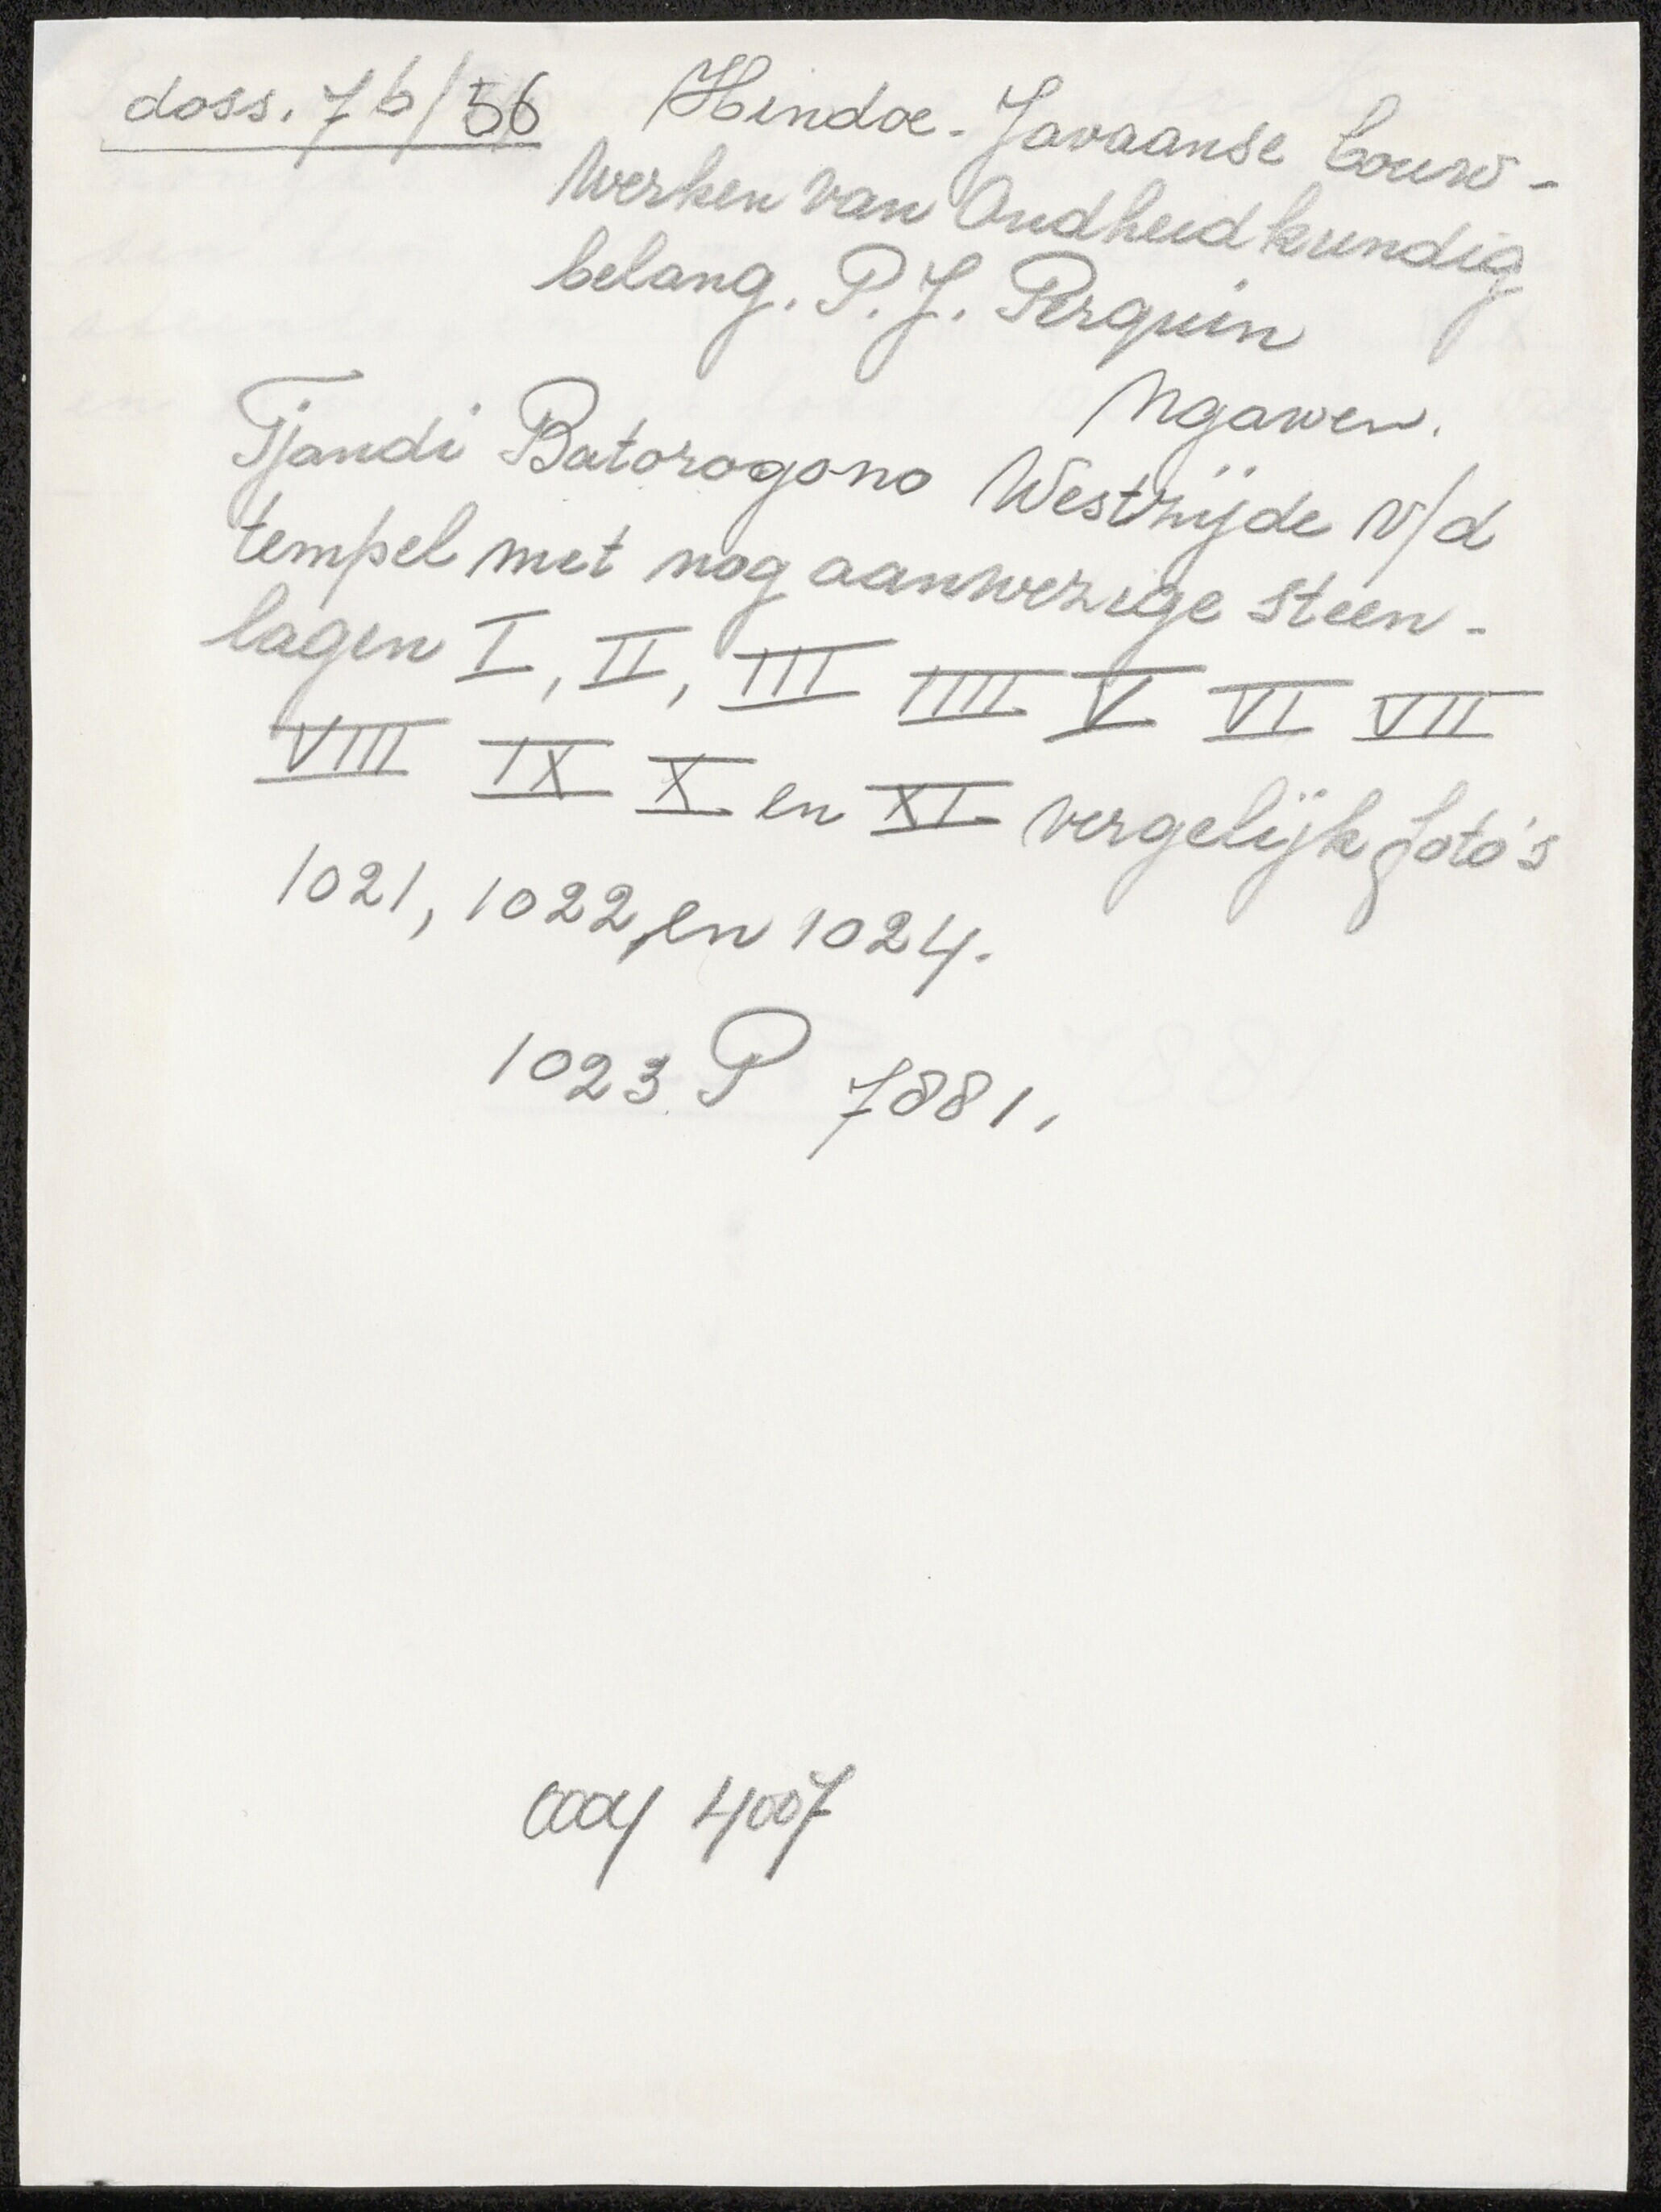 doss. 7b/56 Hindoe-Javaanse bouw-
werken van Oudheidkundig
belang. P.J. Perquin
Ngawen.
Tjandi Batorogono Westzijde v/d
tempel met nog aanwezige steen-
lagen I, II, III IIII V VI VII
VIII IX X en XI vergelijk foto's
1021, 1022, en 1024.
1023 P 7881.
4007